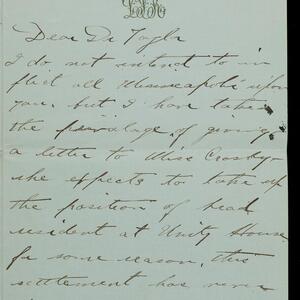 Dear Dr Taylor
I do not intend to in
flict all Minneapolis upon
you, but I have taken
the privalage of giving
a letter to Miss Crosby—
she expects to take up
the position of head
resident at Unity House
for some reason, this
settlement has never